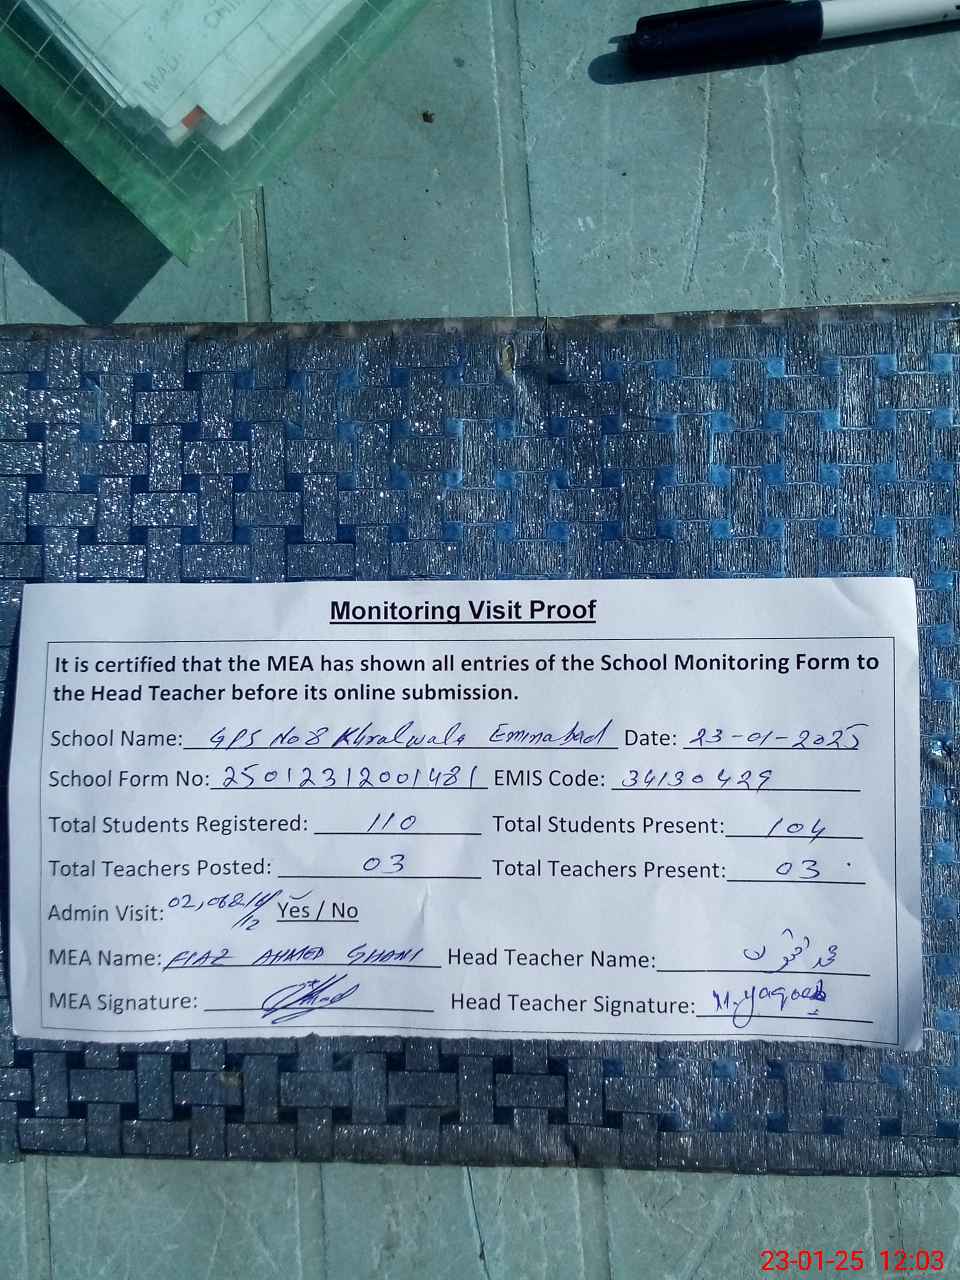 MAD
Monitoring Visit Proof
It is certified that the MEA has shown all entries of the School Monitoring Form to
the Head Teacher before its online submission.
School Name: GPS No 8 Khralwala Eminabad Date: 23-01-2025
School Form No: 25012312001481 EMIS Code: 34130429
Total Students Registered: 110 Total Students Present: 104
Total Teachers Posted: 03 Total Teachers Present: 03
Admin Visit: Yes / No
MEA Name: FIAZ AHMED GHANI Head Teacher Name:
MEA Signature: Head Teacher Signature: M. Yaqoob
23-01-25 12:03